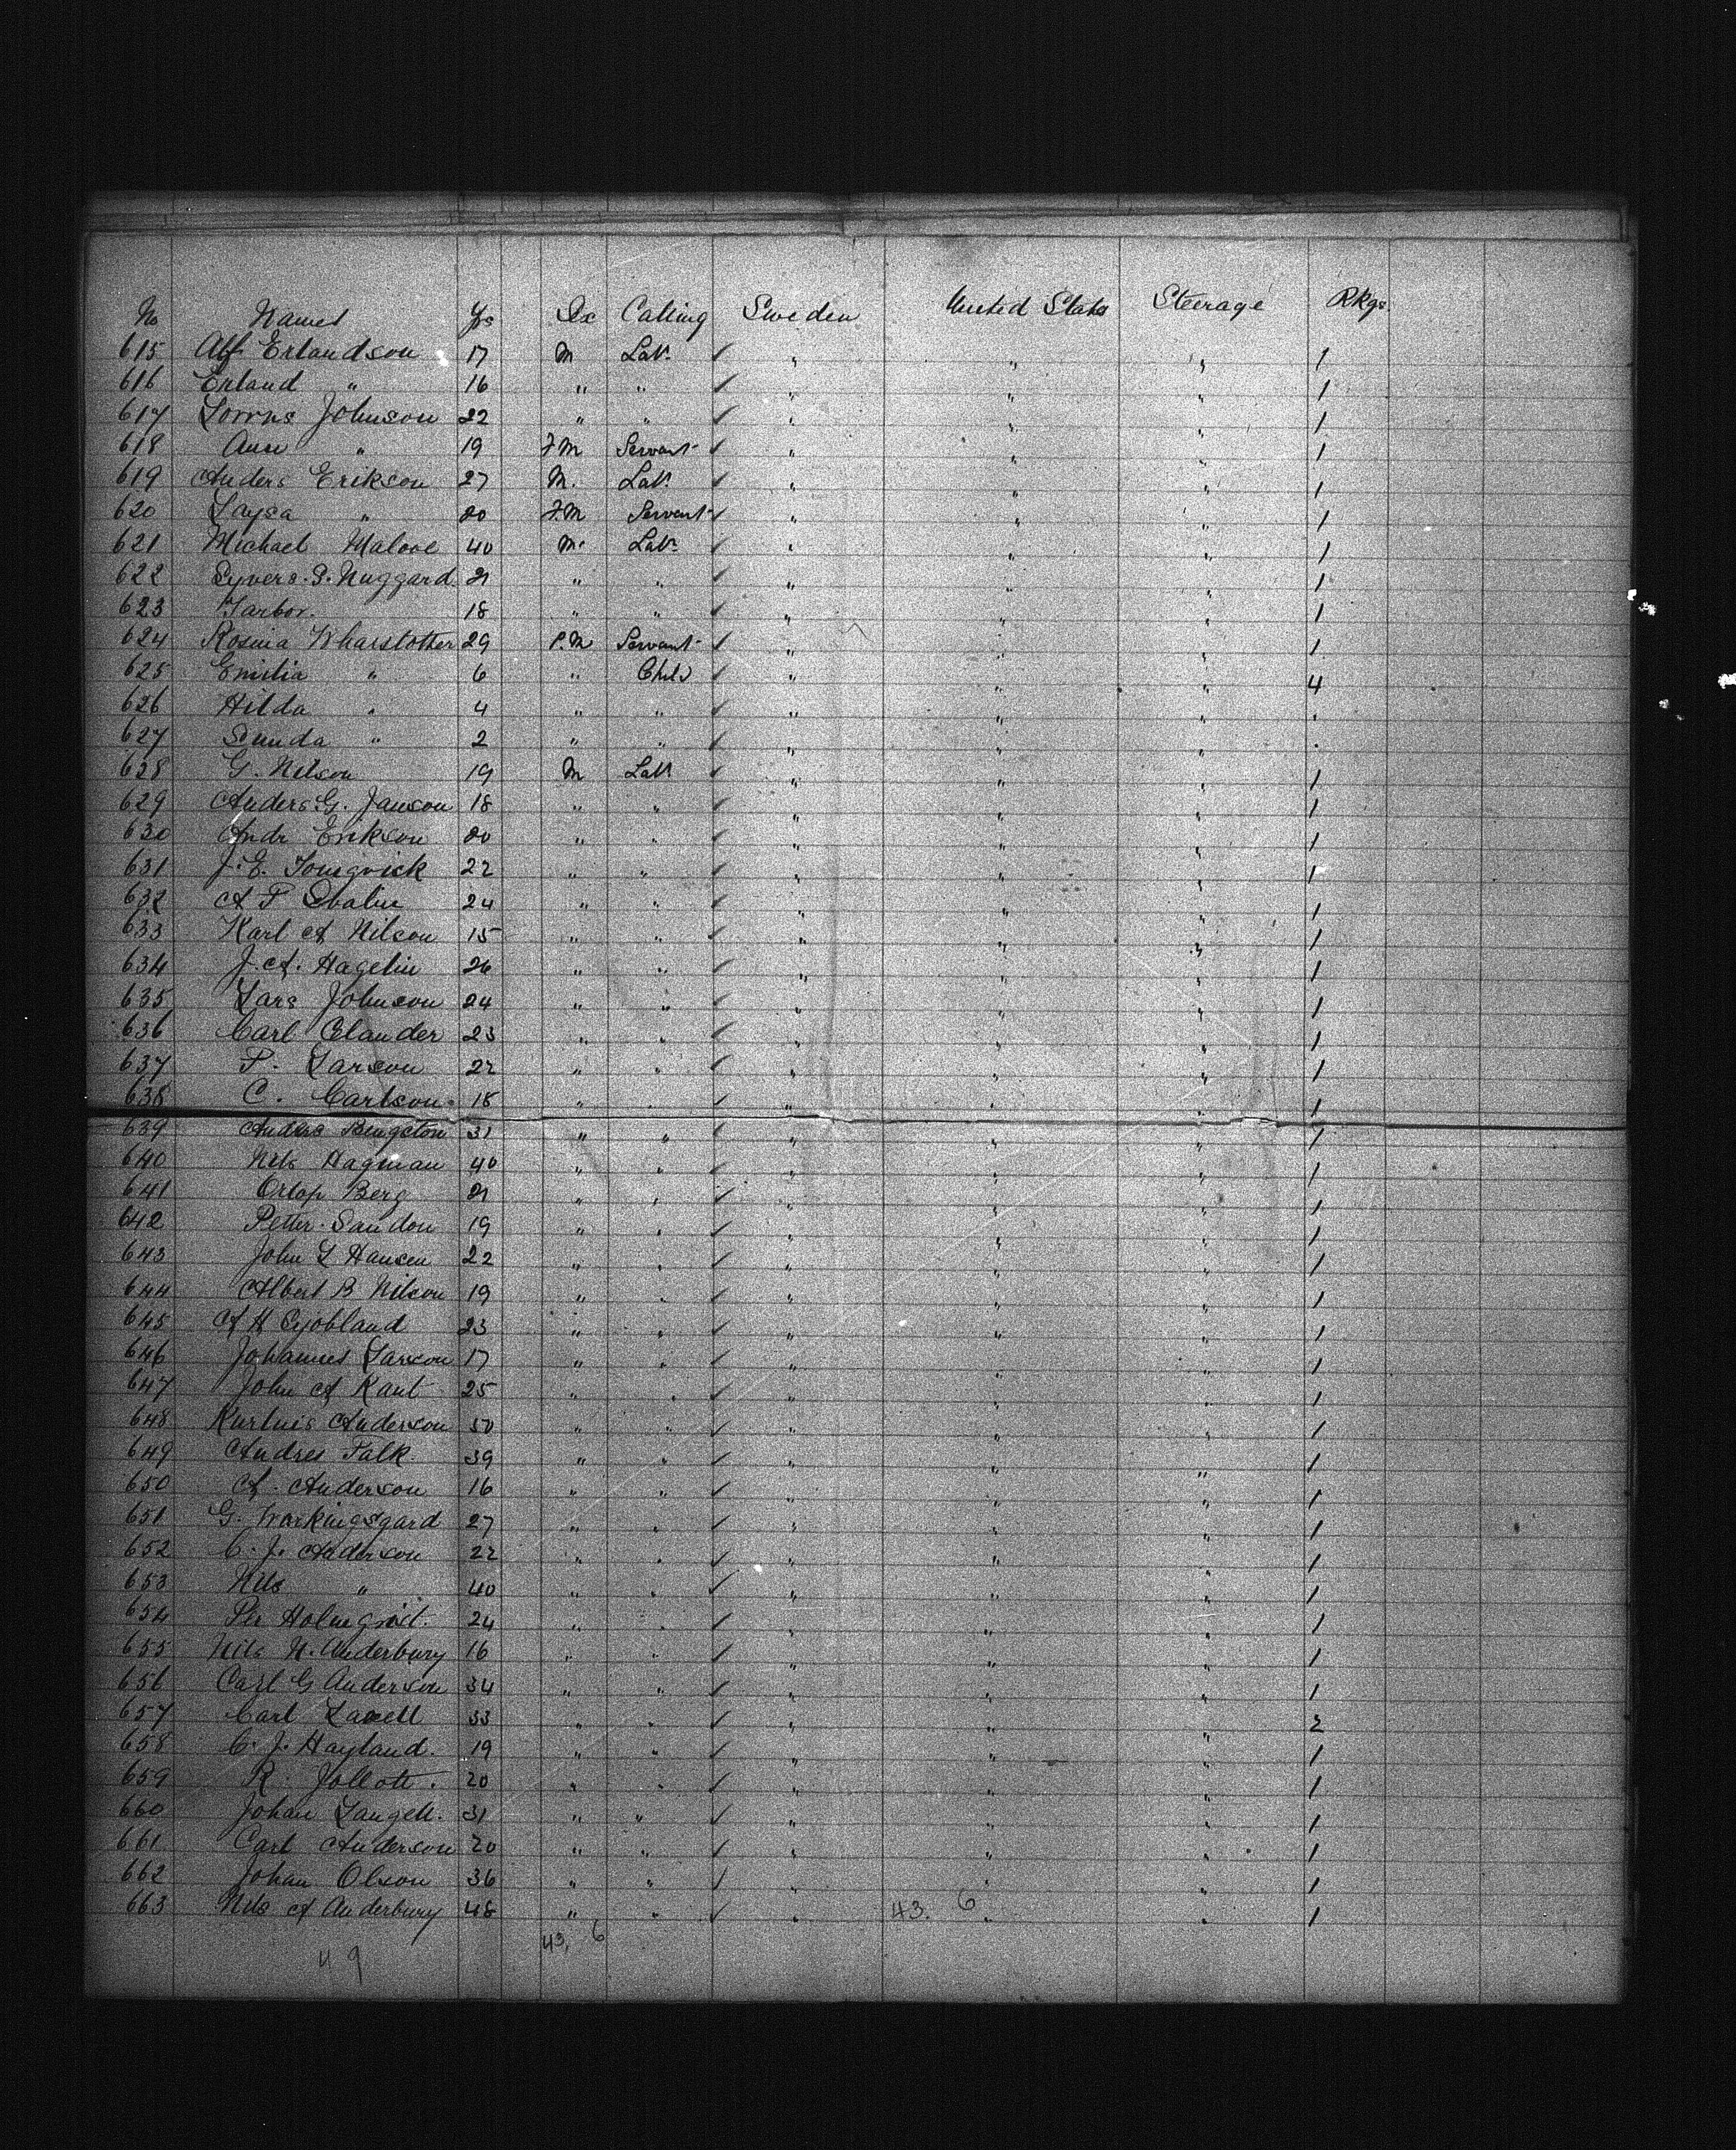 No Names Yrs Sex Calling Sweden United States Steerage Pkgs.
615 Alf Erlandson 17 M Lab. ✓ " " " 1
616 Erland " 16 " " ✓ " " " 1
617 Johnson 22 " " ✓ " " " 1
618 Ane " 19 F.M Servant ✓ " " " 1
619 Anders Erikson 27 M. Lab. ✓ " " " 1
620 Laysa " 20 F.M Servant ✓ " " " 1
621 Michael Malove 40 M. Lab. ✓ " " " 1
622 Syvers. P. Nuggard 21 " " ✓ " " " 1
623 Tarbor. 18 " " ✓ " " " 1
624 Rosina 29 F.M Servant ✓ " " " 1
625 Emilia " 6 " Child ✓ " " " 4
626 Hilda " 4 " " ✓ " " " "
627 Sunda " 2 " " ✓ " " " "
628 G. Nilson 19 M Lab ✓ " " " 1
629 Anders G. Janson 18 " " ✓ " " " 1
630 Andr Erikson 20 " " ✓ " " " 1
631 J. E. 22 " " ✓ " " " 1
632 A P 24 " " ✓ " " " 1
633 Karl A Nilson 15 " " ✓ " " " 1
634 J. A. Hagelin 26 " " ✓ " " " 1
635 Lars Johnson 24 " " ✓ " " " 1
636 Carl Elander 23 " " ✓ " " " 1
637 P. Larson 22 " " ✓ " " " 1
638 C. Carlson 18 " " ✓ " " " 1
639 Anders Bengston 31 " " ✓ " " " 1
640 Nils Hagman 40 " " ✓ " " " 1
641 Berg 21 " " ✓ " " " 1
642 Petter Sandon 19 " " ✓ " " " 1
643 John L Hansen 22 " " ✓ " " " 1
644 Albert B Nilson 19 " " ✓ " " " 1
645 A H Syobland 23 " " ✓ " " " 1
646 Johannes Larson 17 " " ✓ " " " 1
647 John A Kant 25 " " ✓ " " " 1
648 Anderson 50 " " ✓ " " " 1
649 Andres Falk. 39 " " ✓ " " " 1
650 A. Anderson 16 " " ✓ " " " 1
651 G. Workingsgard 27 " " ✓ " " " 1
652 C. J. Anderson 22 " " ✓ " " " 1
653 Nils " 40 " " ✓ " " " 1
654 Per Holmqvist. 24 " " ✓ " " " 1
655 Nils N. Anderbury 16 " " ✓ " " " 1
656 Carl G Anderson 34 " " ✓ " " " 1
657 Carl Laxell 33 " " ✓ " " " 2
658 C. J. Hayland. 19 " " ✓ " " " 1
659 R. Jollott. 20 " " ✓ " " " 1
660 Johan Langell. 31 " " ✓ " " " 1
661 Carl Anderson 20 " " ✓ " " " 1
662 Johan Olson 36 " " ✓ " " " 1
663 Nils A Anderbury 48 " " ✓ " 43. 6 " " 1
43, 6
49